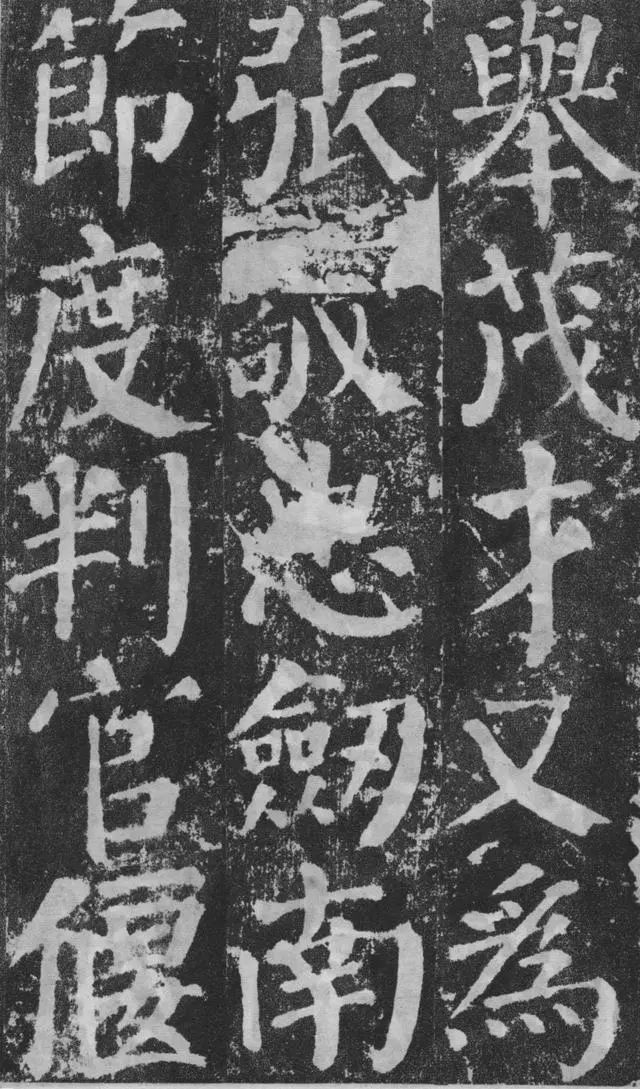 舉茂才又爲
張敬忠劒南
節度判官偃